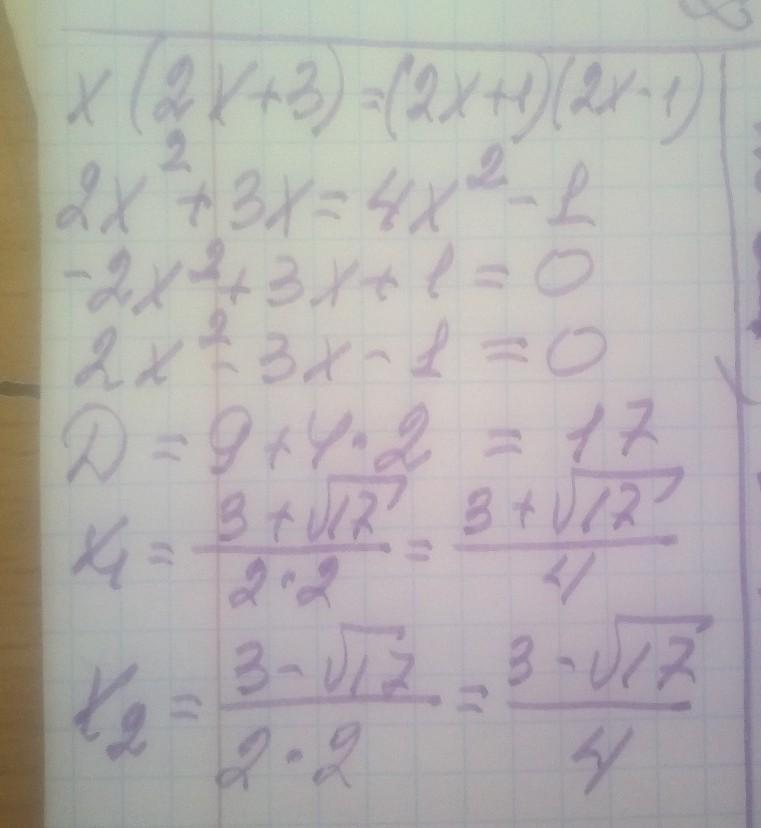 x(2x+3)=(2x+1)(2x-1)
2x²+3x=4x²-1
-2x²+3x+1=0
2x²-3x-1=0
D=9+4·2=17
x₁=(3+√17)/(2·2)=(3+√17)/4
x₂=(3-√17)/(2·2)=(3-√17)/4